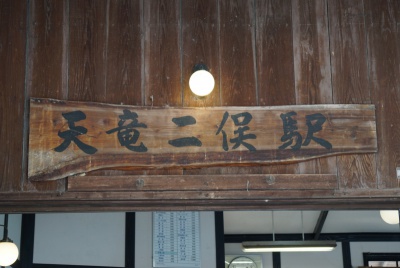 天竜二俣駅